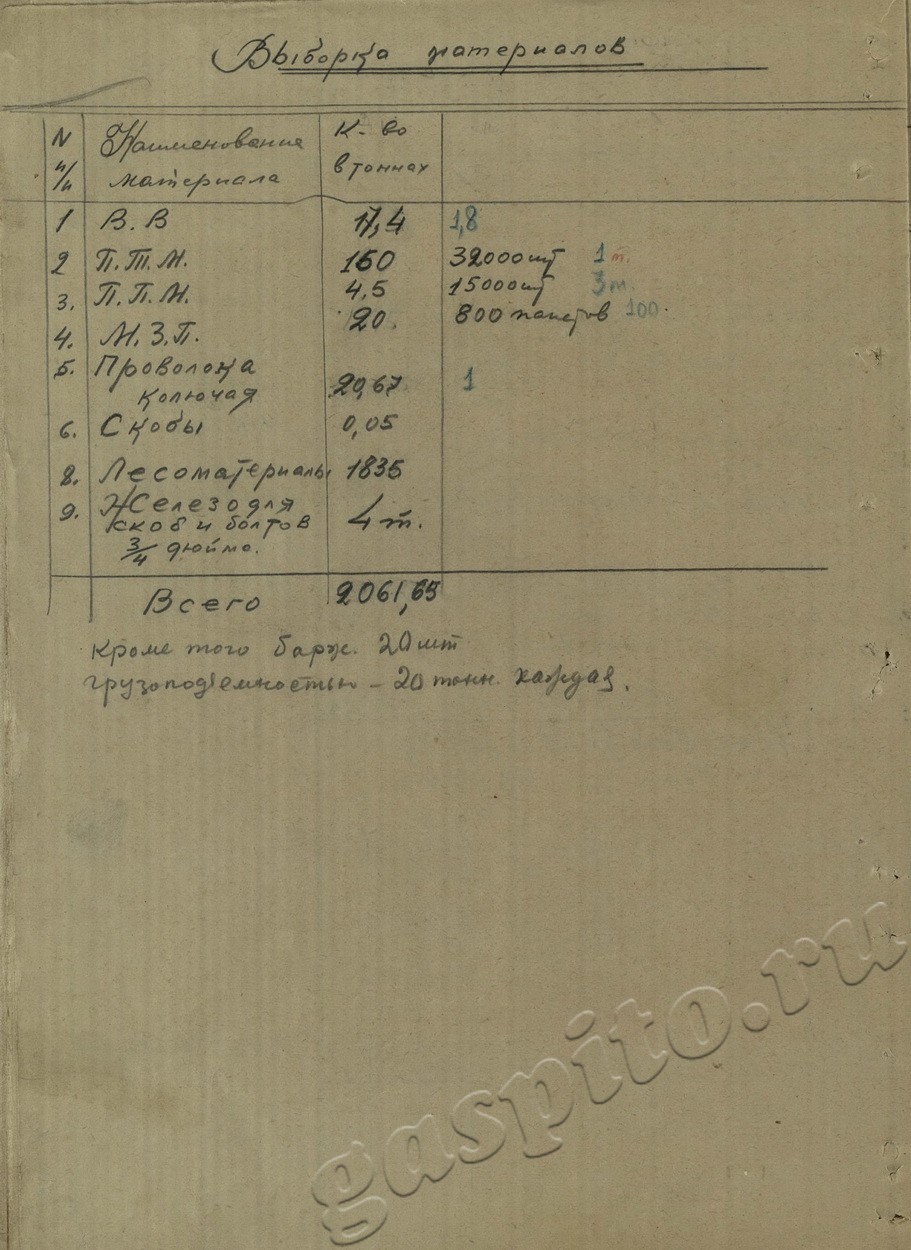 Выборка материалов
N п/п Наименование материала К-во в тоннах
1 В.В 17,4 1,8
2 П.Т.М. 160 32000шт 1т.
3. П.П.М. 4,5 15000шт 3т.
4. М.З.П. 20. 800 пакетов 100
5. Проволока
колючая 20,67 1
6. Скобы 0,05
8. Лесоматериалы 1835
9. Железо для
скоб и болтов 4т.
3/4 дюйма.
Всего 2061,65
Кроме того барж. 20 шт
грузоподъемностью - 20 тонн. каждая.
gaspito.ru